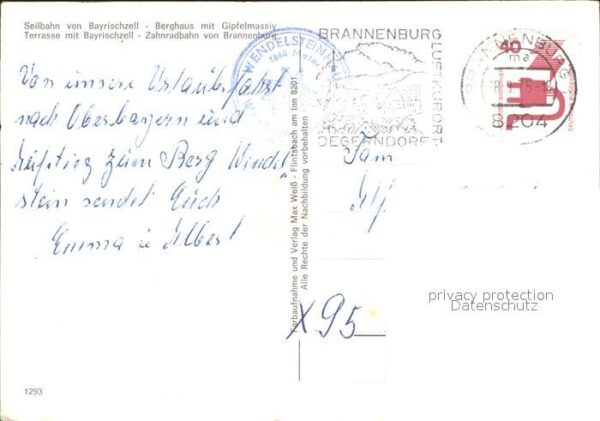 Seilbahn von Bayrischzell - Berghaus mit Gipfelmassiv
Terrasse mit Bayrischzell - Zahnradbahn von Brannenburg
Von unsere Urlaubsfahrt
nach Oberbayern und
Aufstieg zum Berg Wendel
stein sendet Euch
Emma u Albert
WENDELSTEINHAUS
BRANNENBURG
LUFTKURORT
DEGERNDORF
BRANNENBURG
8204
40
Farbaufnahme und Verlag Max Weiß - Flintsbach am Inn 8201
Alle Rechte der Nachbildung vorbehalten
Fam
X95
privacy protection
Datenschutz
1293